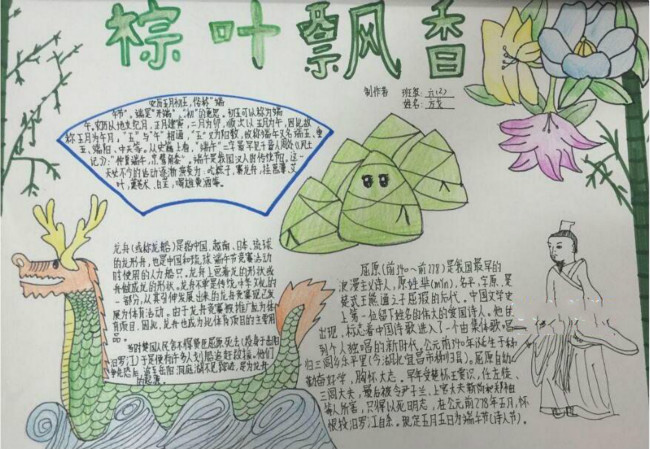 棕叶飘香
制作者 班级:六(2)
姓名:
农历五月初五,俗称"端
午节"。端是"开端"、"初"的意思。初五可以称为端
午。农历以地支纪月,正月建寅,二月为卯,顺次以五月为午,因此
称五月为午月,"五"与"午"相通,"五"又为阳数,故称端午又名端五、重
五、端阳、中天等。从史籍上看,"端午"二字最早见于晋人周处《风土
记》:"仲夏端午,烹鹜角黍"。端午是我国汉人的传统节日,这一
天必不可少的活动逐渐演变为:吃粽子,赛龙舟,挂菖蒲、艾
叶,薰苍术、白芷,喝雄黄酒等。
龙舟(或称龙船)是指中国、越南、日本、琉球
的龙形舟,也是中国和琉球端午节竞赛活动
时使用的人力船只。龙舟上画着龙的形状或
舟做成龙的形状。龙舟不单是传统
一部分,从其引伸发展出来的龙舟竞赛现已发
展为体育活动。由于龙舟竞赛被推广成为体
育项目,因此,龙舟也成为比体育项目的主要用
品。
当时楚国人民舍不得贤臣屈原死去(投身于岳阳
汨罗江)于是便有许多人划船追赶拯救。他们
争先恐后,追至 洞庭湖不见踪迹,是为龙舟
的起源。
屈原(前340~前278)是我国最早的
浪漫主义诗人,原姓芈(mǐn),名平,字原,是
楚武王熊通之子屈瑕的后代。中国文学史
上第一位留下姓名的伟大的爱国诗人。他的
出现,标志着中国诗歌进入了一个由集体歌唱
到个人独唱的新时代。公元前340年诞生于秭
归三闾乡乐平里(今湖北宜昌市秭归县)。屈原自幼
勤奋好学,胸怀大志。早年受楚怀王赏识,任左徒、
三闾大夫,
等人所害,只得以死明志,在公元前278年五月,怀
恨投汨罗江自杀。现定五月五日为端午节(诗人节)。